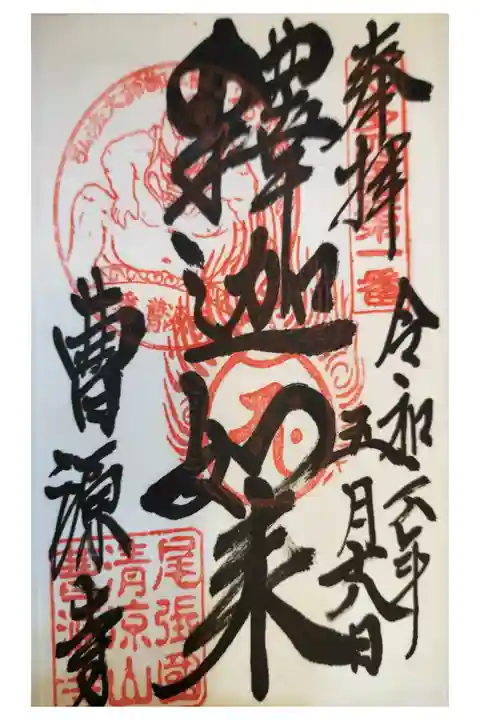 奉拝
令和六年
五月十八日
第一番
釋迦如来
曹源寺
尾張國
清凉山
曹源寺